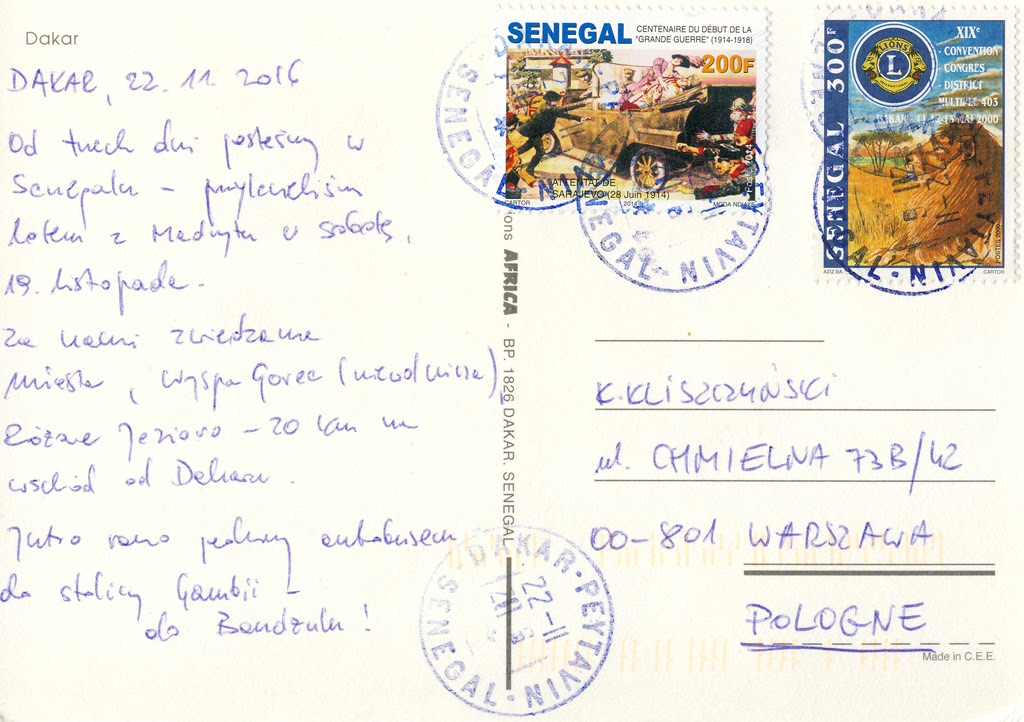 Dakar
DAKAR, 22.11.2016
Od trzech dni jesteśmy w
Senegalu – przylecieliśmy
lotem z Madrytu w sobotę,
19. listopada.
Za nami zwiedzanie
miasta, wyspa Goree (niewolnicza),
Różowe Jezioro – 20 km na
wschód od Dakaru.
Jutro rano jedziemy autobusem
do stolicy Gambii –
do Bandżulu!
SENEGAL
CENTENAIRE DU DÉBUT DE LA
"GRANDE GUERRE" (1914-1918)
200F
ATTENTAT DE
SARAJEVO (28 Juin 1914)
CARTOR
2014
MODA NDIAYE
Postes 2014
SENEGAL 300F
LIONS
L
INTERNATIONAL
XIXe
CONVENTION
CONGRES
DISTRICT
MULTIPLE 403
DAKAR - 11-12-13 MAI 2000
AZIZ BA
POSTES 2000
CARTOR
ions AFRICA - BP. 1826 DAKAR. SENEGAL
K. KLISZCZYŃSKI
ul. CHMIELNA 73B/42
00-801 WARSZAWA
POLOGNE
Made in C.E.E.
DAKAR-PENTAVIN
22-11
SENEGAL